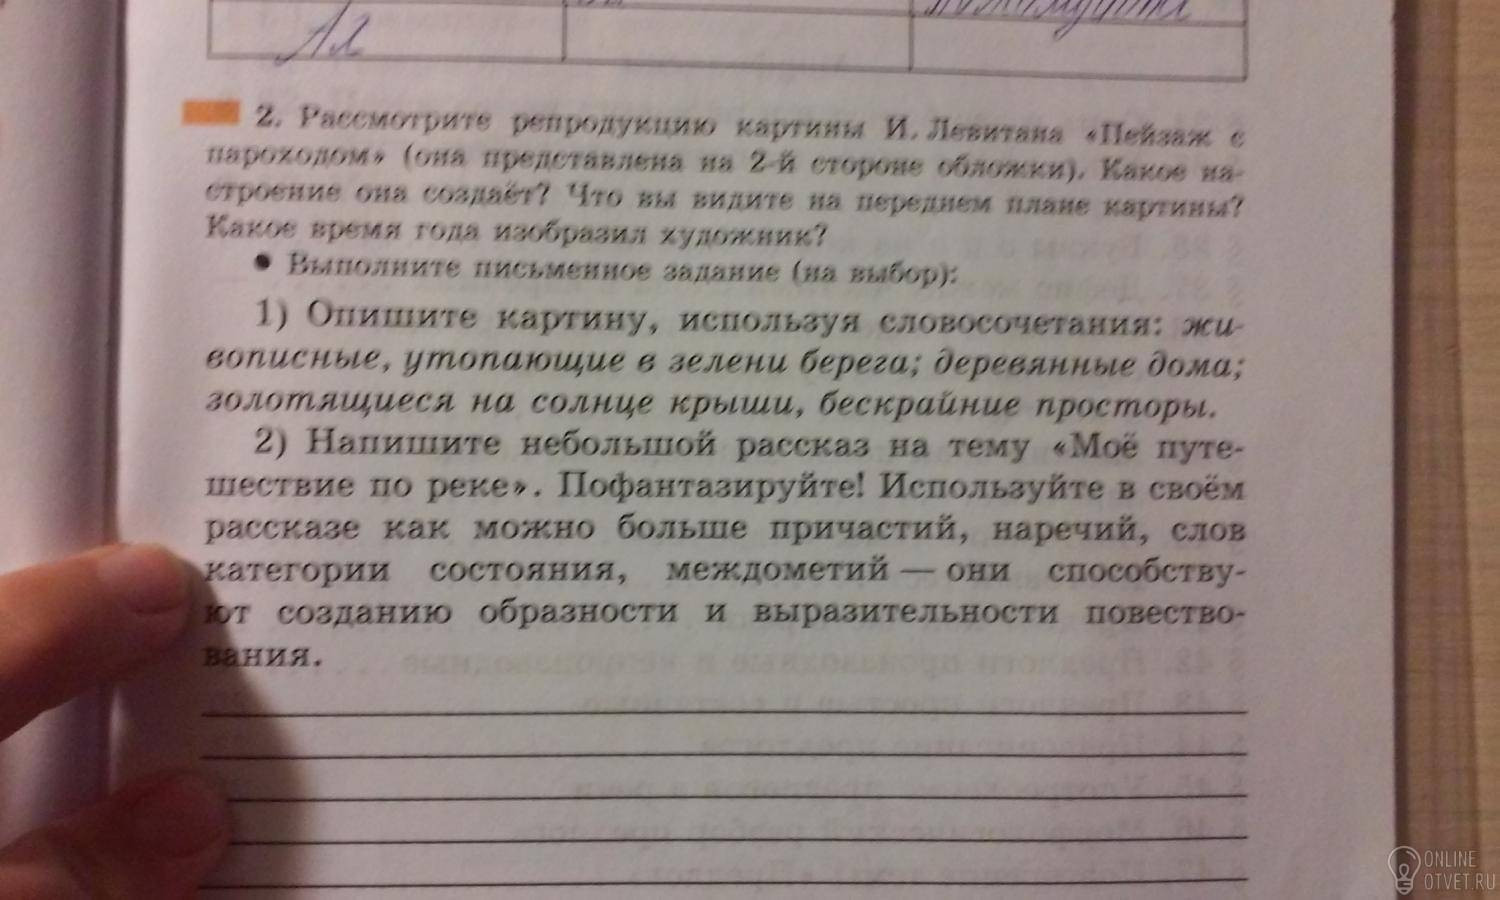 Ал
2. Рассмотрите репродукцию картины И. Левитана «Пейзаж с
пароходом» (она представлена на 2-й стороне обложки). Какое на-
строение она создаёт? Что вы видите на переднем плане картины?
Какое время года изобразил художник?
● Выполните письменное задание (на выбор):
1) Опишите картину, используя словосочетания: жи-
вописные, утопающие в зелени берега; деревянные дома;
золотящиеся на солнце крыши, бескрайние просторы.
2) Напишите небольшой рассказ на тему «Моё путе-
шествие по реке». Пофантазируйте! Используйте в своём
рассказе как можно больше причастий, наречий, слов
категории состояния, междометий — они способству-
ют созданию образности и выразительности повество-
вания.
ONLINE
OTVET.RU